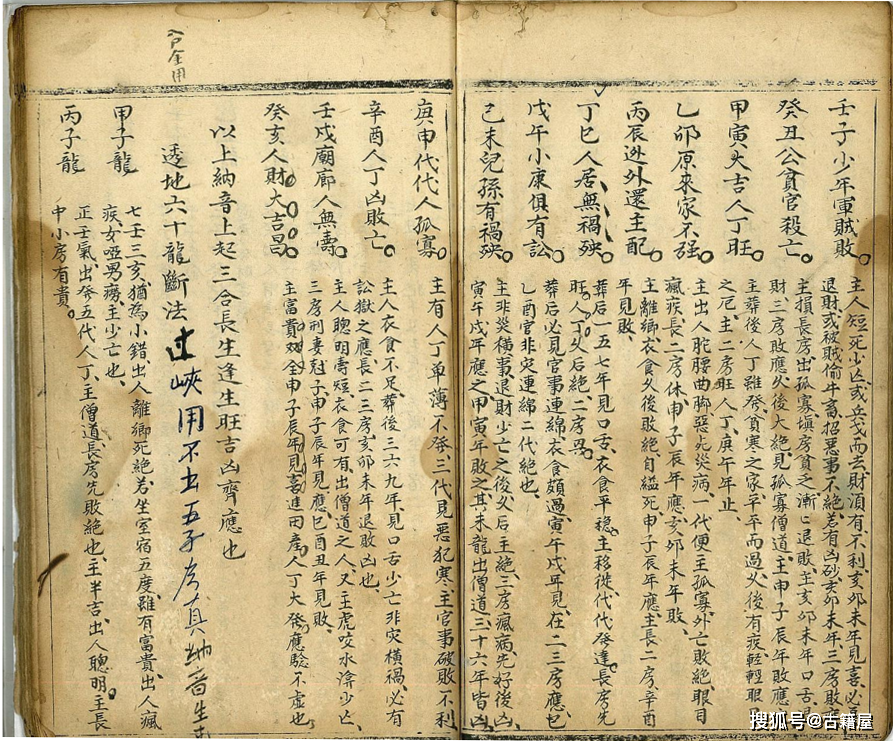 壬子少年軍賊敗
主人短死少亡或兵戈而去財須有不利亥卯未年見喜必
退財或被賊偷牛畜招惡事不絕若有凶砂亥卯未年三房敗
癸丑公貧官殺亡
主損長房出孤寡塡房貧乏漸〻退敗主亥卯未年口舌見
財三房敗應火後大絕見孤寡僧道主申子辰年敗應
甲寅大吉人丁旺
主葬後人丁雖發貧寒之家平平而過火後有疾輕輕眼
之厄主二房旺人丁庚午年止
乙卯原來家不强
主出人駝腰曲脚惡災病一代便主孤寡外亡敗絕眼目
瘋疾長二房休申子辰年應亥卯未年敗
丙辰迯外還主配
主離鄉衣食久後敗絕自縊死申子辰年應主長二房辛酉
年見敗
丁巳人居無禍殃
葬后一五七年見口舌衣食平穩主移徙代代發達長房先
旺人丁久后絕二房畏
戊午小康俱有訟
葬后必見官事連綿衣食頗過寅午戌年見在二三房應
乙酉官非灾連綿二代絕也
己未兒孫有禍殃
主非災橫事退財少亡之後久后主絕三房瘋病先好後凶
寅午戌年應之甲寅年敗之其未龍出僧道三十六年皆凶
庚申代代人孤寡
主有人丁单薄不發三代見惡犯寒主官事破敗不利
辛酉人丁凶敗亡
主人衣食不足葬後三六九年見口舌少亡非灾橫禍必有
訟獄之應長二三房亥卯未年退敗凶也
壬戌廟廊人無壽
主人聰明壽短衣食可有出僧道之人又主虎咬水渰少亡
三房刑妻尅子申子辰年見應巳酉丑年見敗
癸亥人財大吉昌
主富貴双全申子辰年見喜進田產人丁大發應驗不虛也
以上納音上起三合長生逢生旺吉凶齊應也
透地六十龍斷法
过峽用不出五子房真納音生
合金用
甲子龍
七壬三亥猶為小錯出人離鄉死絕若坐室宿五度雖有富貴出人瘋
疾女啞男癆主少亡也
丙子龍
正壬氣出發五代人丁主僧道長房先敗絕也主半吉出人聰明主長
中小房有貴
搜狐号@古籍屋